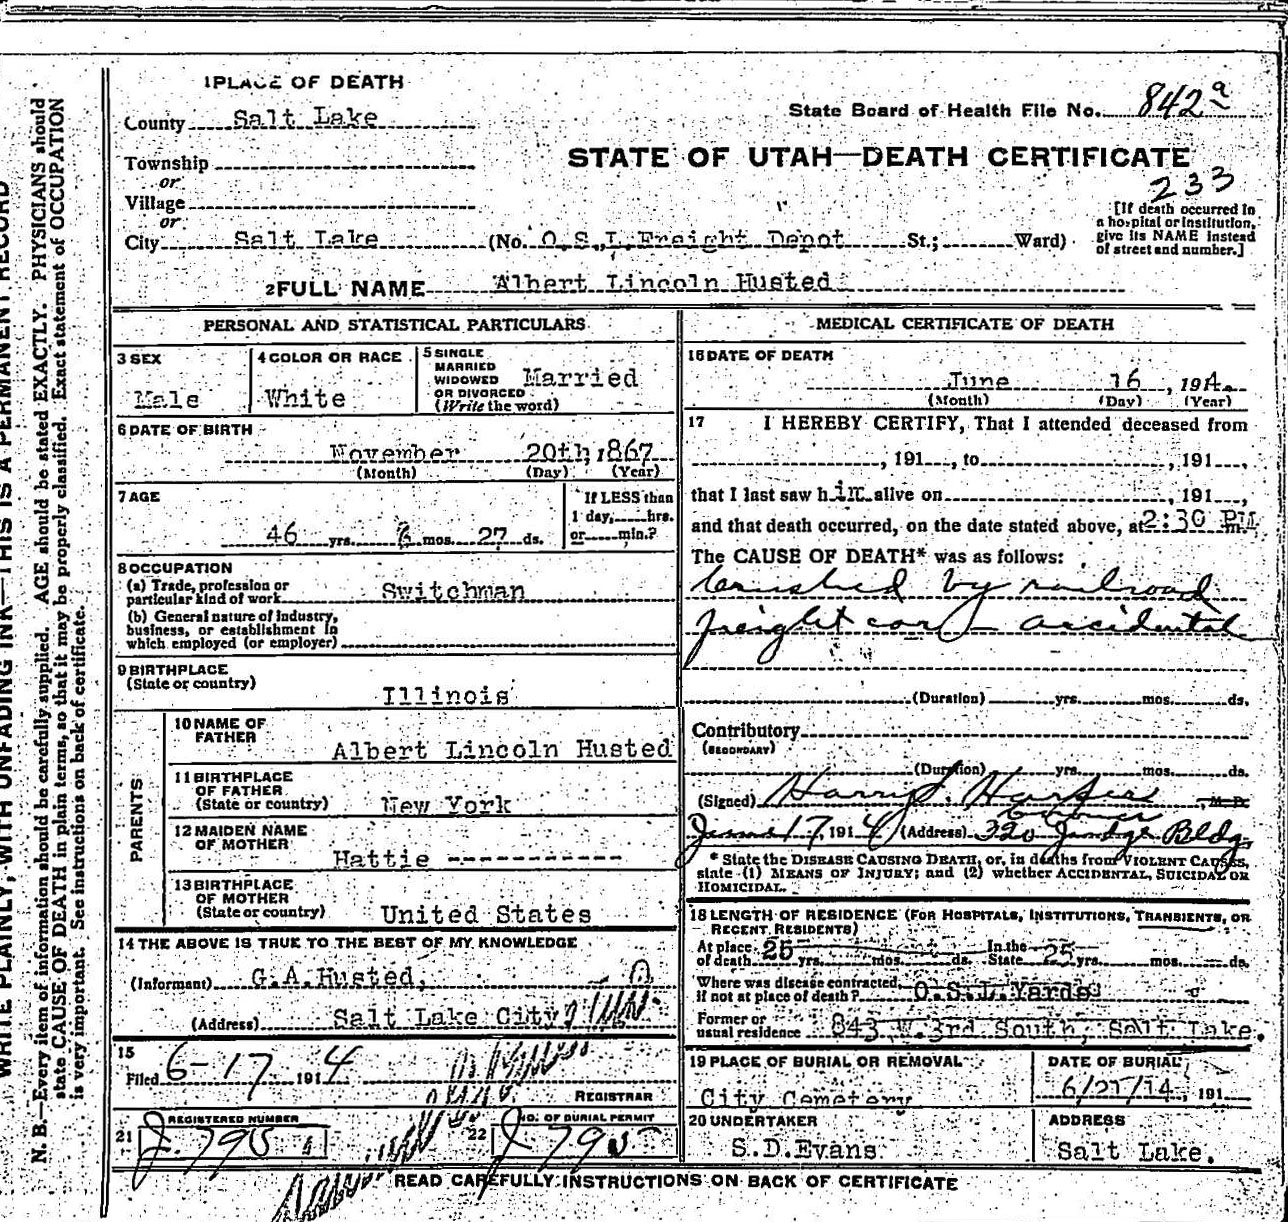 WRITE PLAINLY, WITH UNFADING INK—THIS IS A PERMANENT RECORD
N. B.—Every item of information should be carefully supplied. AGE should be stated EXACTLY. PHYSICIANS should
state CAUSE OF DEATH in plain terms, so that it may be properly classified. Exact statement of OCCUPATION
is very important. See instructions on back of certificate.
1 PLACE OF DEATH
County Salt Lake
Township
or
Village
or
City Salt Lake (No. O.S.L.Freight Depot St.; Ward)
State Board of Health File No. 842 a
STATE OF UTAH—DEATH CERTIFICATE
233
[If death occurred in
a hospital or institution,
give its NAME instead
of street and number.]
2 FULL NAME Albert Lincoln Husted
PERSONAL AND STATISTICAL PARTICULARS
3 SEX
Male
4 COLOR OR RACE
White
5 SINGLE
MARRIED
WIDOWED
OR DIVORCED
(Write the word)
Married
6 DATE OF BIRTH
November 20th, 1867
(Month) (Day) (Year)
7 AGE
46 yrs. mos. 27 ds.
If LESS than
1 day, hrs.
or min.?
8 OCCUPATION
(a) Trade, profession or
particular kind of work Switchman
(b) General nature of industry,
business, or establishment in
which employed (or employer)
9 BIRTHPLACE
(State or country)
Illinois
PARENTS
10 NAME OF
FATHER
Albert Lincoln Husted
11 BIRTHPLACE
OF FATHER
(State or country) New York
12 MAIDEN NAME
OF MOTHER
Hattie -----------
13 BIRTHPLACE
OF MOTHER
(State or country) United States
14 THE ABOVE IS TRUE TO THE BEST OF MY KNOWLEDGE
(Informant) G.A.Husted,
(Address) Salt Lake City
15
Filed 6-17 1914
REGISTRAR
REGISTERED NUMBER
21
NO. OF BURIAL PERMIT
22
MEDICAL CERTIFICATE OF DEATH
16 DATE OF DEATH
June 16, 1914.
(Month) (Day) (Year)
17 I HEREBY CERTIFY, That I attended deceased from
, 191 , to , 191 ,
that I last saw him alive on , 191 ,
and that death occurred, on the date stated above, at 2:30 PM m.
The CAUSE OF DEATH* was as follows:
Crushed by railroad
freight car - accidental
(Duration) yrs. mos. ds.
Contributory
(SECONDARY)
(Duration) yrs. mos. ds.
(Signed) Harry Harper M.D.
Coroner
June 17, 1914 (Address) 320 Judge Bldg.
* State the DISEASE CAUSING DEATH, or, in deaths from VIOLENT CAUSES,
state (1) MEANS OF INJURY; and (2) whether ACCIDENTAL, SUICIDAL OR
HOMICIDAL.
18 LENGTH OF RESIDENCE (FOR HOSPITALS, INSTITUTIONS, TRANSIENTS, OR
RECENT RESIDENTS)
At place
of death 25 yrs. mos. ds. In the
State 25 yrs. mos. ds.
Where was disease contracted,
if not at place of death? O.S.L.Yards
Former or
usual residence 843 W.3rd South, Salt Lake.
19 PLACE OF BURIAL OR REMOVAL
City Cemetery
DATE OF BURIAL
6/21/14, 191
20 UNDERTAKER
S.D.Evans
ADDRESS
Salt Lake.
READ CAREFULLY INSTRUCTIONS ON BACK OF CERTIFICATE